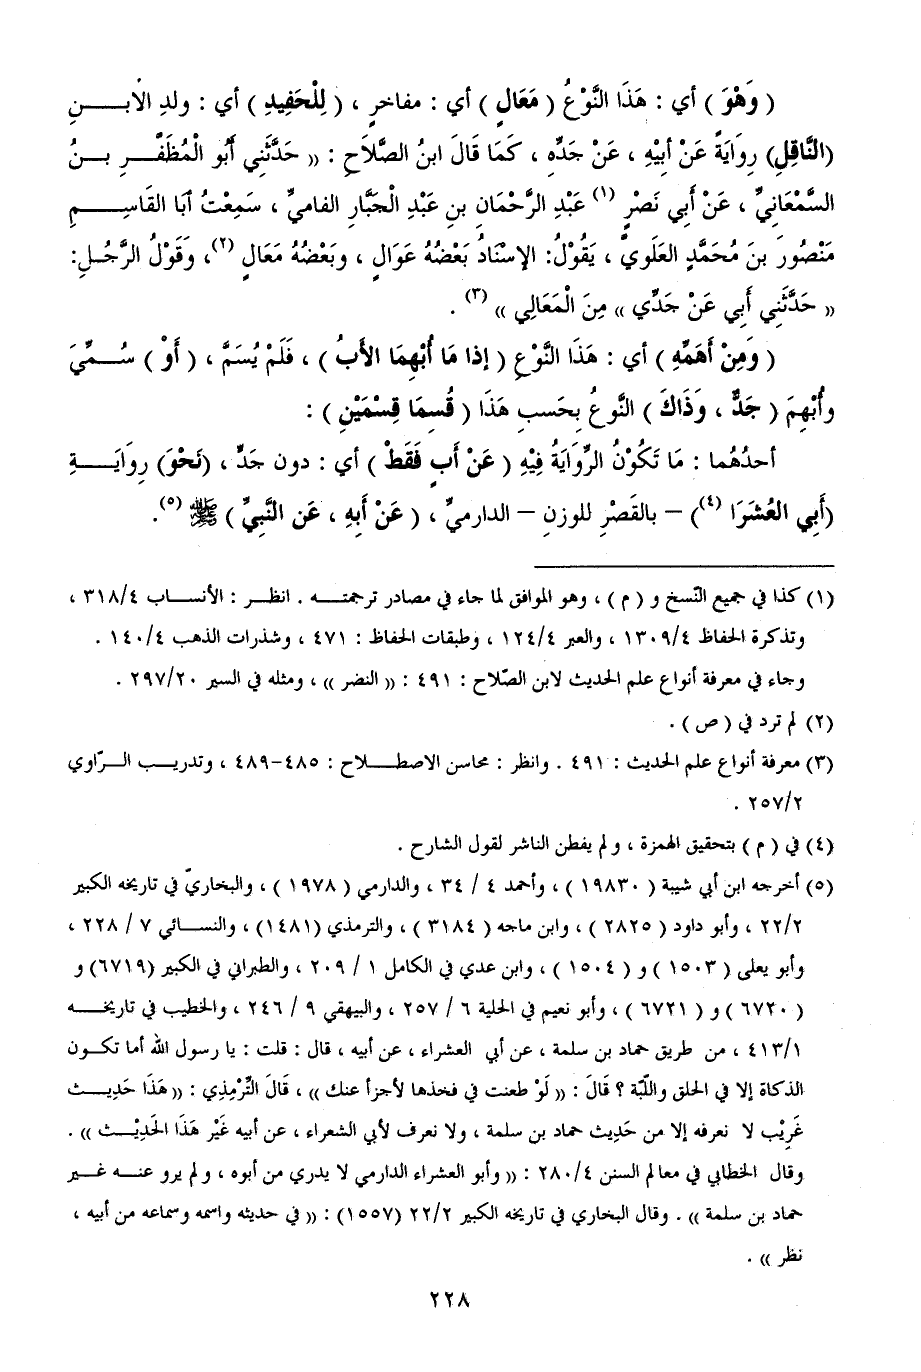 ( وَهْوَ ) أي : هَذَا النَّوْعُ ( مَعَالٍ ) أي : مفاخرٍ ، ( لِلْحَفِيدِ ) أي : ولدِ الابنِ
(النَّاقِلِ) رِوَايَةً عَنْ أبيْهِ ، عَنْ جَدِّهِ ، كَمَا قَالَ ابنُ الصَّلاَحِ : (( حَدَّثَنِي أَبُو الْمُظَفَّرِ بنُ
السَّمْعَانِيِّ ، عَنْ أَبِي نَصْرٍ (١) عَبْدِ الرَّحْمَانِ بنِ عَبْدِ الْجَبَّارِ الفاميِّ ، سَمِعْتُ أبَا القَاسِمِ
مَنْصُورَ بنَ مُحَمَّدٍ العَلَويَّ ، يَقُولُ: الإسْنَادُ بَعْضُهُ عَوَالٍ ، وبَعْضُهُ مَعَالٍ (٢)، وَقَوْلُ الرَّجُلِ:
(( حَدَّثَنِي أَبِي عَنْ جَدِّي )) مِنَ الْمَعَالِي )) (٣) .
( وَمِنْ أَهَمِّهِ ) أي : هَذَا النَّوْعِ ( إذا مَا أُبْهِمَا الأَبُ ) ، فَلَمْ يُسَمَّ ، ( أَوْ ) سُمِّيَ
وأُبْهِمَ ( جَدٌّ ، وَذَاكَ ) النَّوعُ بِحَسبِ هَذَا ( قُسِمَا قِسْمَيْنِ ) :
أحدُهُما : مَا تَكُوْنُ الرِّوَايَةُ فِيْهِ ( عَنْ أبٍ فَقَطْ ) أي : دون جَدٍّ ، (نَحْوَ) رِوَايَةِ
(أَبِي العُشَرَا (٤)) – بالقَصْرِ للوزنِ – الدارميِّ ، ( عَنْ أَبِهِ ، عَنِ النَّبِيِّ ) ﷺ (٥).
(١) كذا في جميع النّسخ و ( م ) ، وهو الموافق لما جاء في مصادر ترجمته . انظر : الأنساب ٣١٨/٤ ،
وتذكرة الحفاظ ١٣٠٩/٤ ، والعبر ١٢٤/٤ ، وطبقات الحفاظ : ٤٧١ ، وشذرات الذهب ١٤٠/٤ .
وجاء في معرفة أنواع علم الحديث لابن الصّلاح : ٤٩١ : (( النضر )) ، ومثله في السير ٢٩٧/٢٠ .
(٢) لم ترد في ( ص ) .
(٣) معرفة أنواع علم الحديث : ٤٩١ . وانظر : محاسن الاصطلاح : ٤٨٥-٤٨٩ ، وتدريب الرّاوي
٢٥٧/٢ .
(٤) في ( م ) بتحقيق الهمزة ، ولم يفطن الناشر لقول الشارح .
(٥) أخرجه ابن أبي شيبة ( ١٩٨٣٠ ) ، وأحمد ٤ / ٣٤ ، والدارمي ( ١٩٧٨ ) ، والبخاريّ في تاريخه الكبير
٢٢/٢ ، وأبو داود ( ٢٨٢٥ ) ، وابن ماجه ( ٣١٨٤ ) ، والترمذي (١٤٨١) ، والنسائي ٧ / ٢٢٨ ،
وأبو يعلى ( ١٥٠٣ ) و ( ١٥٠٤ ) ، وابن عدي في الكامل ١ / ٢٠٩ ، والطبراني في الكبير (٦٧١٩) و
( ٦٧٢٠ ) و ( ٦٧٢١ ) ، وأبو نعيم في الحلية ٦ / ٢٥٧ ، والبيهقي ٩ / ٢٤٦ ، والخطيب في تاريخه
٤١٣/١ ، من طريق حماد بن سلمة ، عن أبي العشراء ، عن أبيه ، قال : قلت : يا رسول الله أما تكون
الذكاة إلا في الحلق واللّبة ؟ قَالَ : (( لَوْ طعنت في فخذها لأجزأ عنك )) ، قَالَ التِّرْمِذِي : (( هَذَا حَدِيث
غَرِيْب لا نعرفه إلا من حَدِيث حماد بن سلمة ، ولا نعرف لأبي الشعراء ، عن أبيه غَيْر هَذَا الحَدِيْث )) .
وقال الخطابي في معالم السنن ٢٨٠/٤ : (( وأبو العشراء الدارمي لا يدري من أبوه ، ولم يرو عنه غير
حماد بن سلمة )) . وقال البخاري في تاريخه الكبير ٢٢/٢ (١٥٥٧) : (( في حديثه واسمه وسماعه من أبيه ،
نظر )) .
٢٢٨